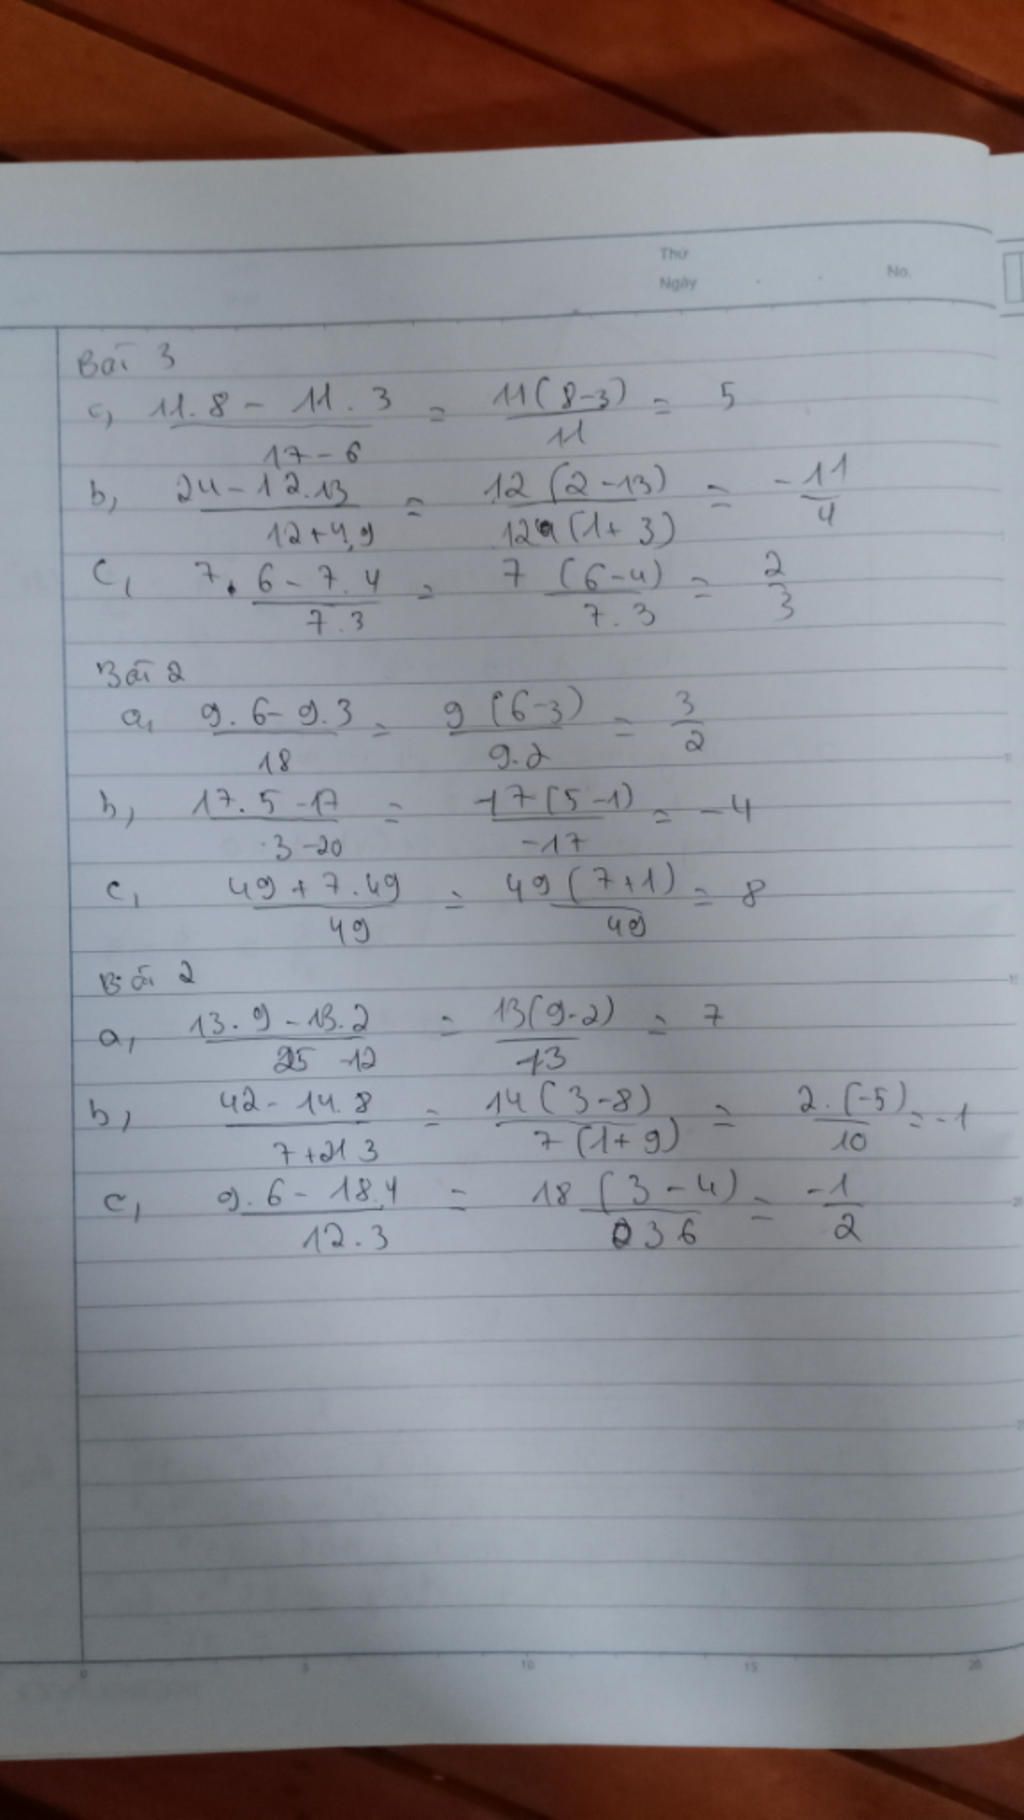 Thứ
Ngày No.
Bài 3
c, (11.8 - 11.3)/(17-6) = 11(8-3)/11 = 5
b, (24-12.13)/(12+4.9) = 12(2-13)/12(1+3) = -11/4
c, (7.6-7.4)/(7.3) = 7(6-4)/(7.3) = 2/3
Bài 2
a, (9.6-9.3)/18 = 9(6-3)/(9.2) = 3/2
b, (17.5-17)/(3-20) = 17(5-1)/(-17) = -4
c, (49+7.49)/49 = 49(7+1)/49 = 8
Bài 2
a, (13.9-13.2)/(25-12) = 13(9-2)/13 = 7
b, (42-14.8)/(7+21 3) = 14(3-8)/7(1+9) = 2.(-5)/10 = -1
c, (9.6-18.4)/(12.3) = 18(3-4)/36 = -1/2
0 5 10 15 20